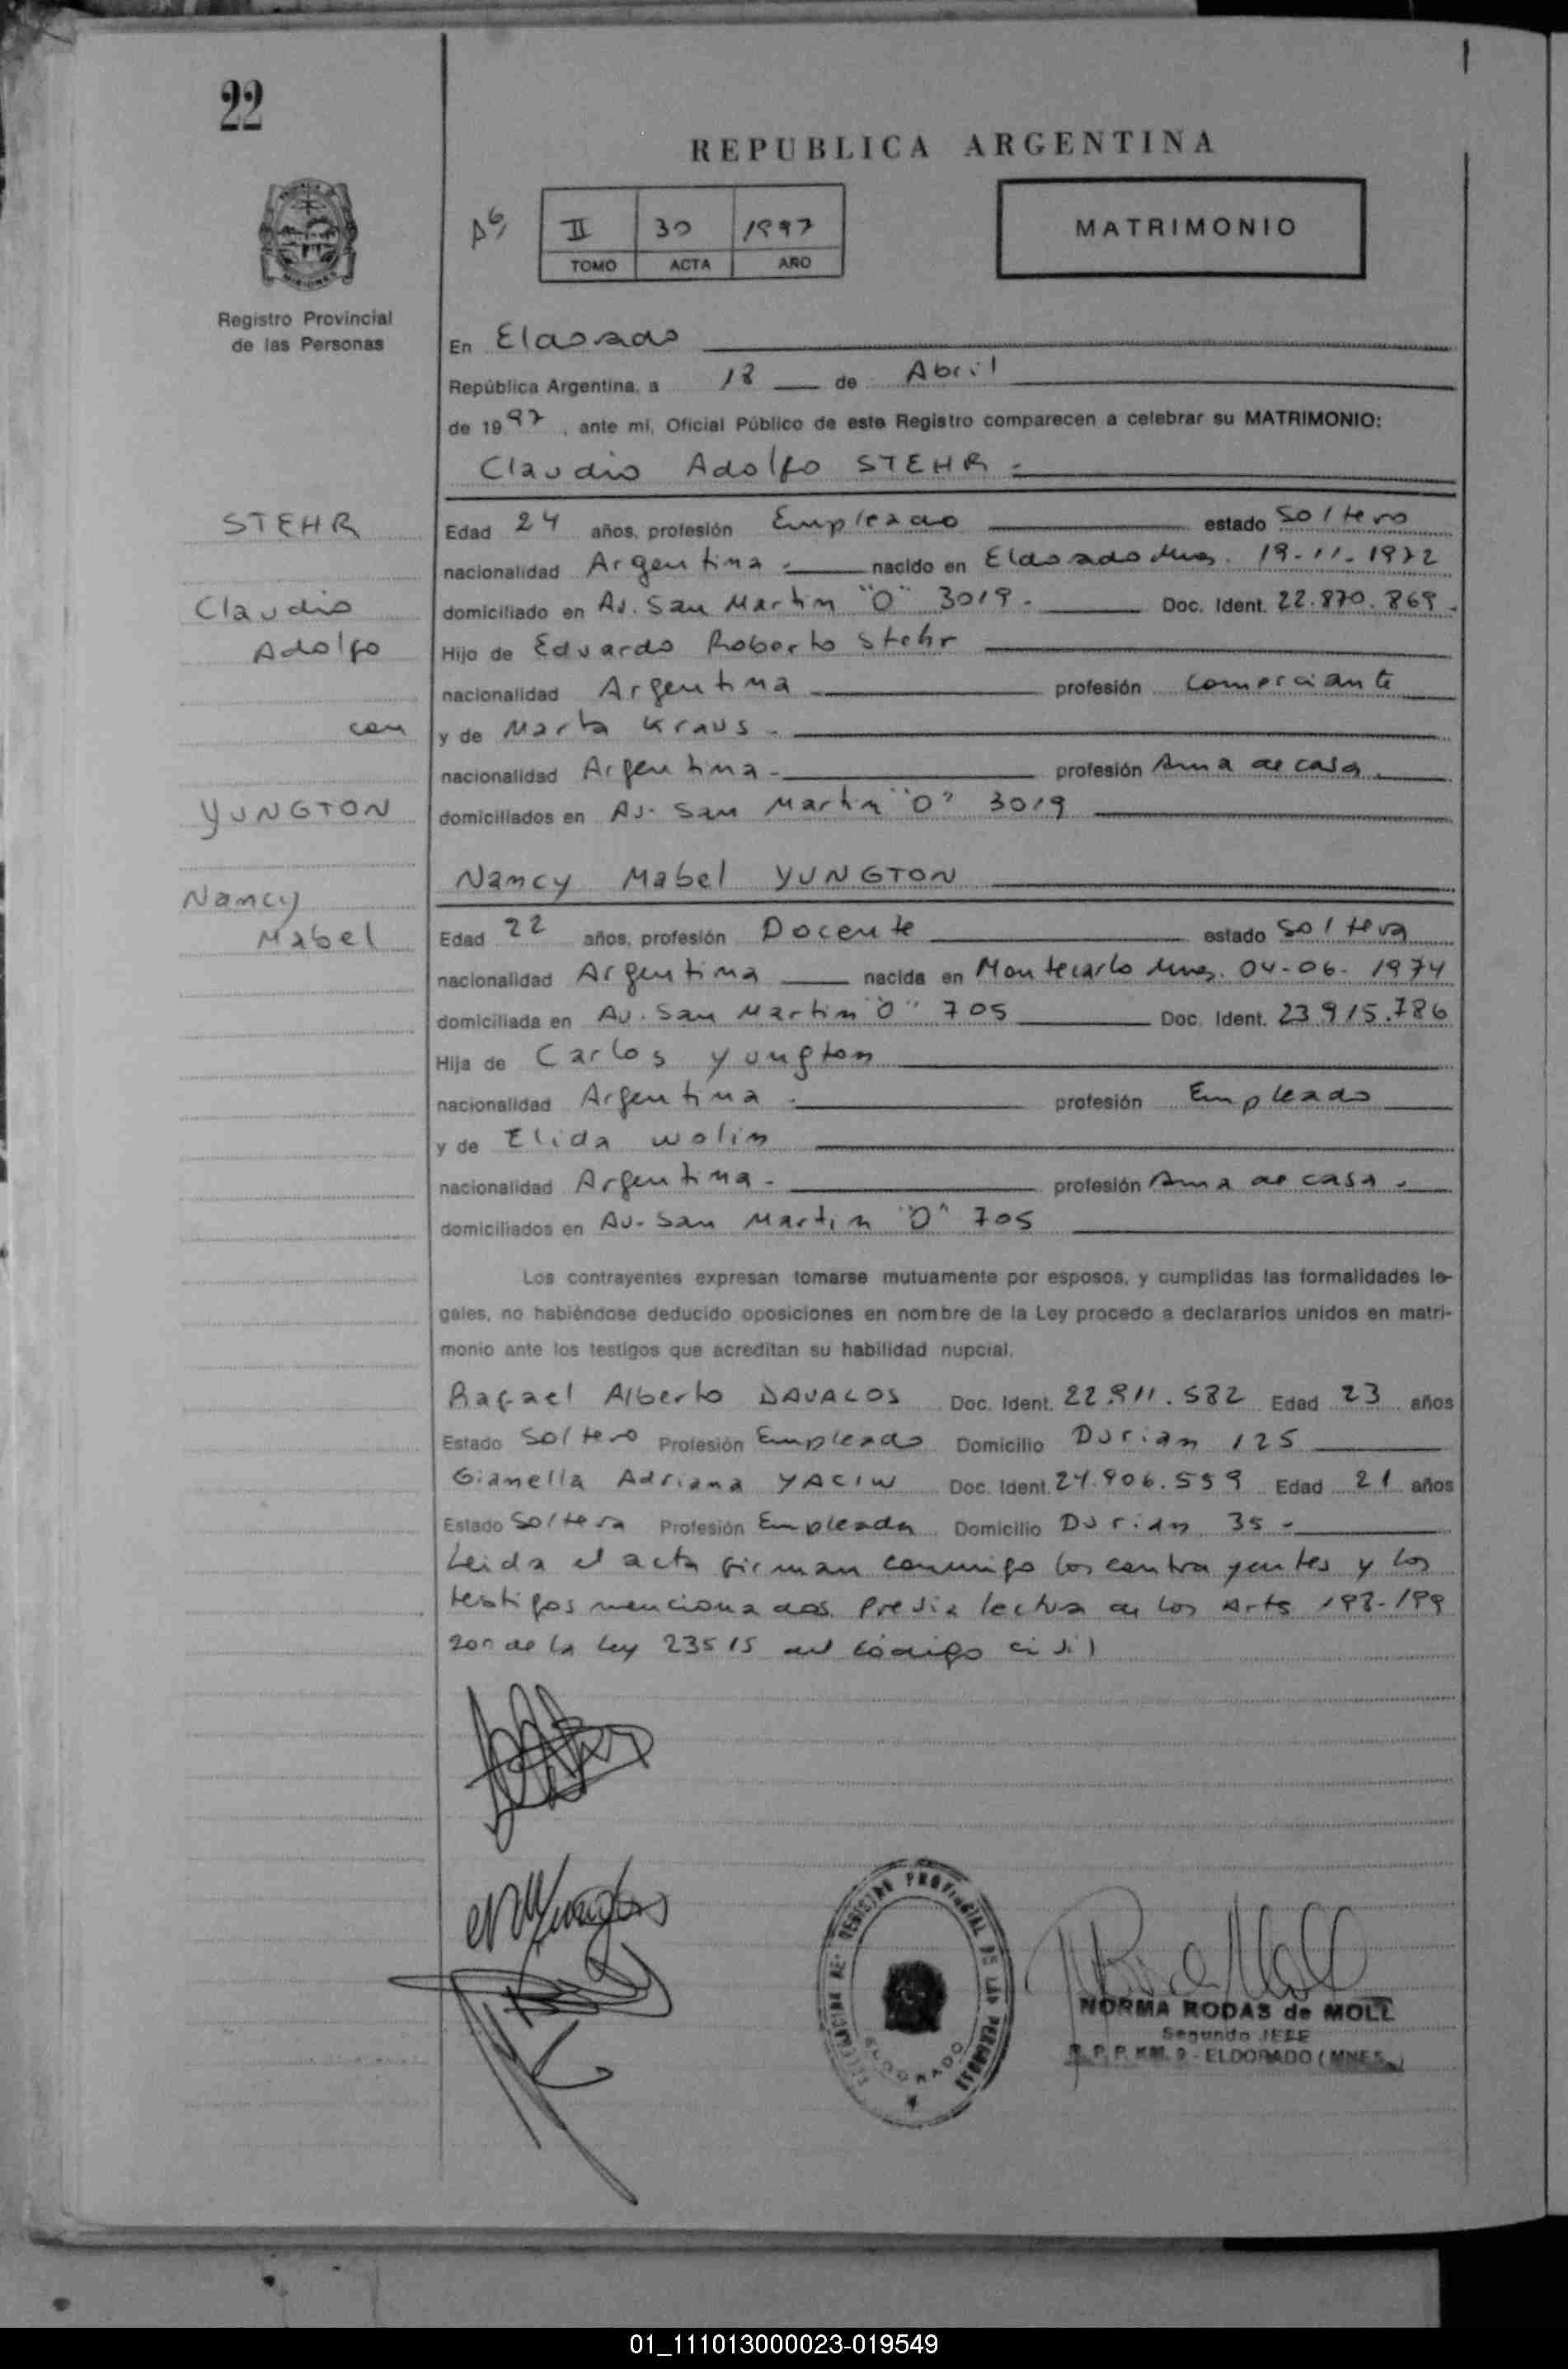 22
REPUBLICA ARGENTINA
II 30 1997
TOMO ACTA AÑO
MATRIMONIO
Registro Provincial
de las Personas
En Eldorado
República Argentina, a 18 de Abril
de 1997, ante mí, Oficial Público de este Registro comparecen a celebrar su MATRIMONIO:
Claudio Adolfo STEHR
STEHR
Claudio
Adolfo
con
YUNGTON
Nancy
Mabel
Edad 24 años, profesión Empleado estado Soltero
nacionalidad Argentina nacido en Eldorado Mnes. 19-11-1972
domiciliado en Av. San Martin "O" 3019 - Doc. Ident. 22.870.869.
Hijo de Eduardo Roberto Stehr
nacionalidad Argentina profesión Comerciante
y de Marta Kraus -
nacionalidad Argentina - profesión Ama de casa
domiciliados en Av. San Martin "O" 3019
Nancy Mabel YUNGTON
Edad 22 años, profesión Docente estado Soltera
nacionalidad Argentina nacida en Montecarlo Mnes. 04-06-1974
domiciliada en Av. San Martin "O" 705 Doc. Ident. 23.915.786
Hija de Carlos Yungton
nacionalidad Argentina - profesión Empleado
y de Elida Wolin
nacionalidad Argentina - profesión Ama de casa -
domiciliados en Av. San Martin "O" 705
Los contrayentes expresan tomarse mutuamente por esposos, y cumplidas las formalidades le-
gales, no habiéndose deducido oposiciones en nombre de la Ley procedo a declararlos unidos en matri-
monio ante los testigos que acreditan su habilidad nupcial.
Rafael Alberto DAVALOS Doc. Ident. 22.911.582 Edad 23 años
Estado Soltero Profesión Empleado Domicilio Durian 125
Gianella Adriana YACIW Doc. Ident. 24.906.559 Edad 21 años
Estado Soltera Profesión Empleada Domicilio Durian 35 -
Leida el acta firman conmigo los contrayentes y los
testigos mencionados. Previa lectura de los Arts 198-199
200 de la Ley 23515 del código civil
REGISTRO PROVINCIAL DE LAS PERSONAS
ELDORADO
NORMA RODAS de MOLL
Segundo JEFE
R. P. P. KM. 9 - ELDORADO (MNES.)
01_111013000023-019549